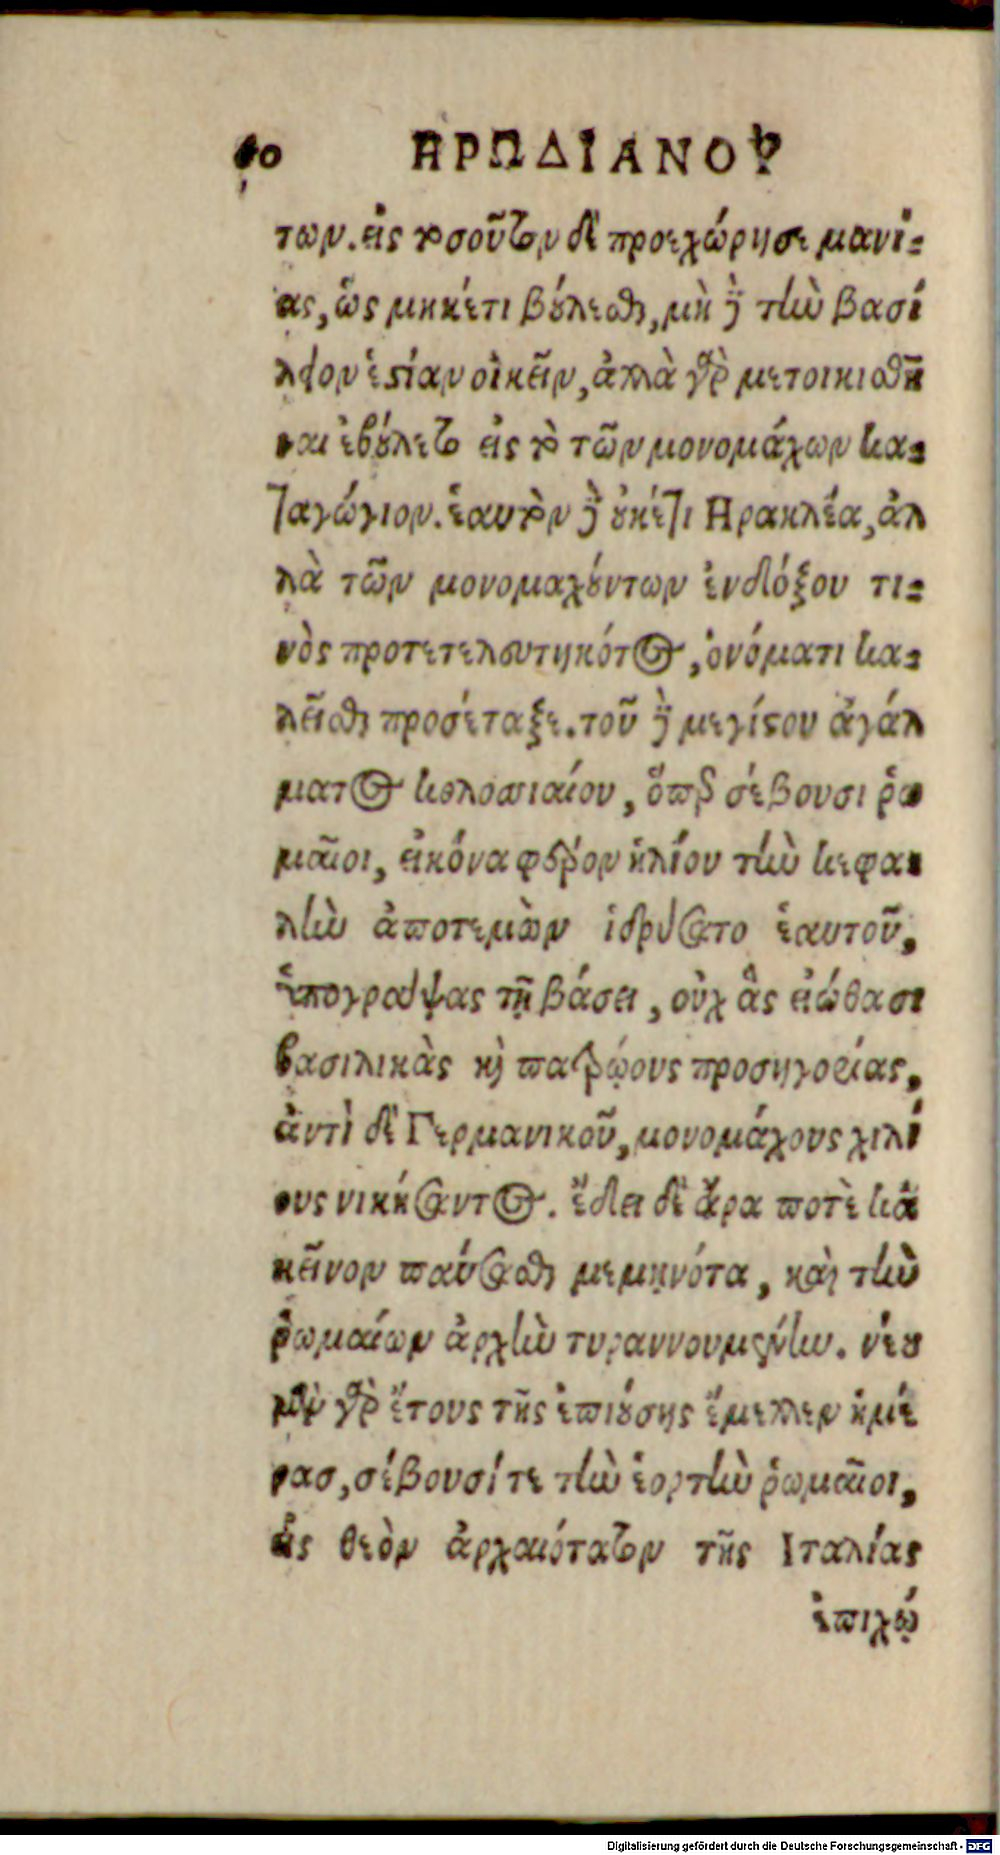 60 ΗΡΩΔΙΑΝΟΥ
των. εἰς τοσοῦτον δὲ προεχώρησε μανί-
ας, ὡς μηκέτι βούλεσθαι, μὴ δὲ τὴν βασί
λειον ἑστίαν οἰκεῖν, ἀλλὰ γὰρ μετοικισθῆ
ναι ἐβούλετο εἰς τὸ τῶν μονομάχων κα-
ταγώγιον. ἑαυτὸν δὲ οὐκέτι Ηρακλέα, ἀλ
λὰ τῶν μονομαχούντων ἐνδόξου τι-
νὸς προτετελευτηκότος, ὀνόματι κα-
λεῖσθαι προσέταξε. τοῦ δὲ μεγίστου ἀγάλ
ματος κολοσσιαίου, ὅπερ σέβουσι ῥω
μαῖοι, εἰκόνα φέρον ἡλίου τὴν κεφα-
λὴν ἀποτεμὼν ἱδρύσατο ἑαυτοῦ,
ὑπογράψας τῇ βάσει, οὐχ ἃς εἰώθασι
βασιλικὰς καὶ πατρῴους προσηγορίας,
ἀντὶ δὲ Γερμανικοῦ, μονομάχους χιλί
ους νικήσαντος. ἔδει δὲ ἄρα ποτὲ κἀ
κεῖνον παύσασθαι μεμηνότα, καὶ τὴν
ῥωμαίων ἀρχὴν τυραννουμένην. νέου
μὲν γὰρ ἔτους τῆς ἐπιούσης ἔμελλεν ἡμέ
ρασ, σέβουσί τε τὴν ἑορτὴν ῥωμαῖοι,
εἰς θεὸν ἀρχαιότατον τῆς Ιταλίας
ἐπιχώ
Digitalisierung gefördert durch die Deutsche Forschungsgemeinschaft - DFG